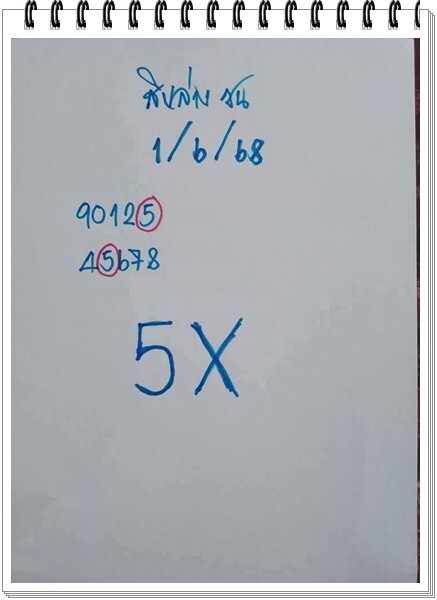 สิบล่าง ชน
1/6/68
90125
45678
5X